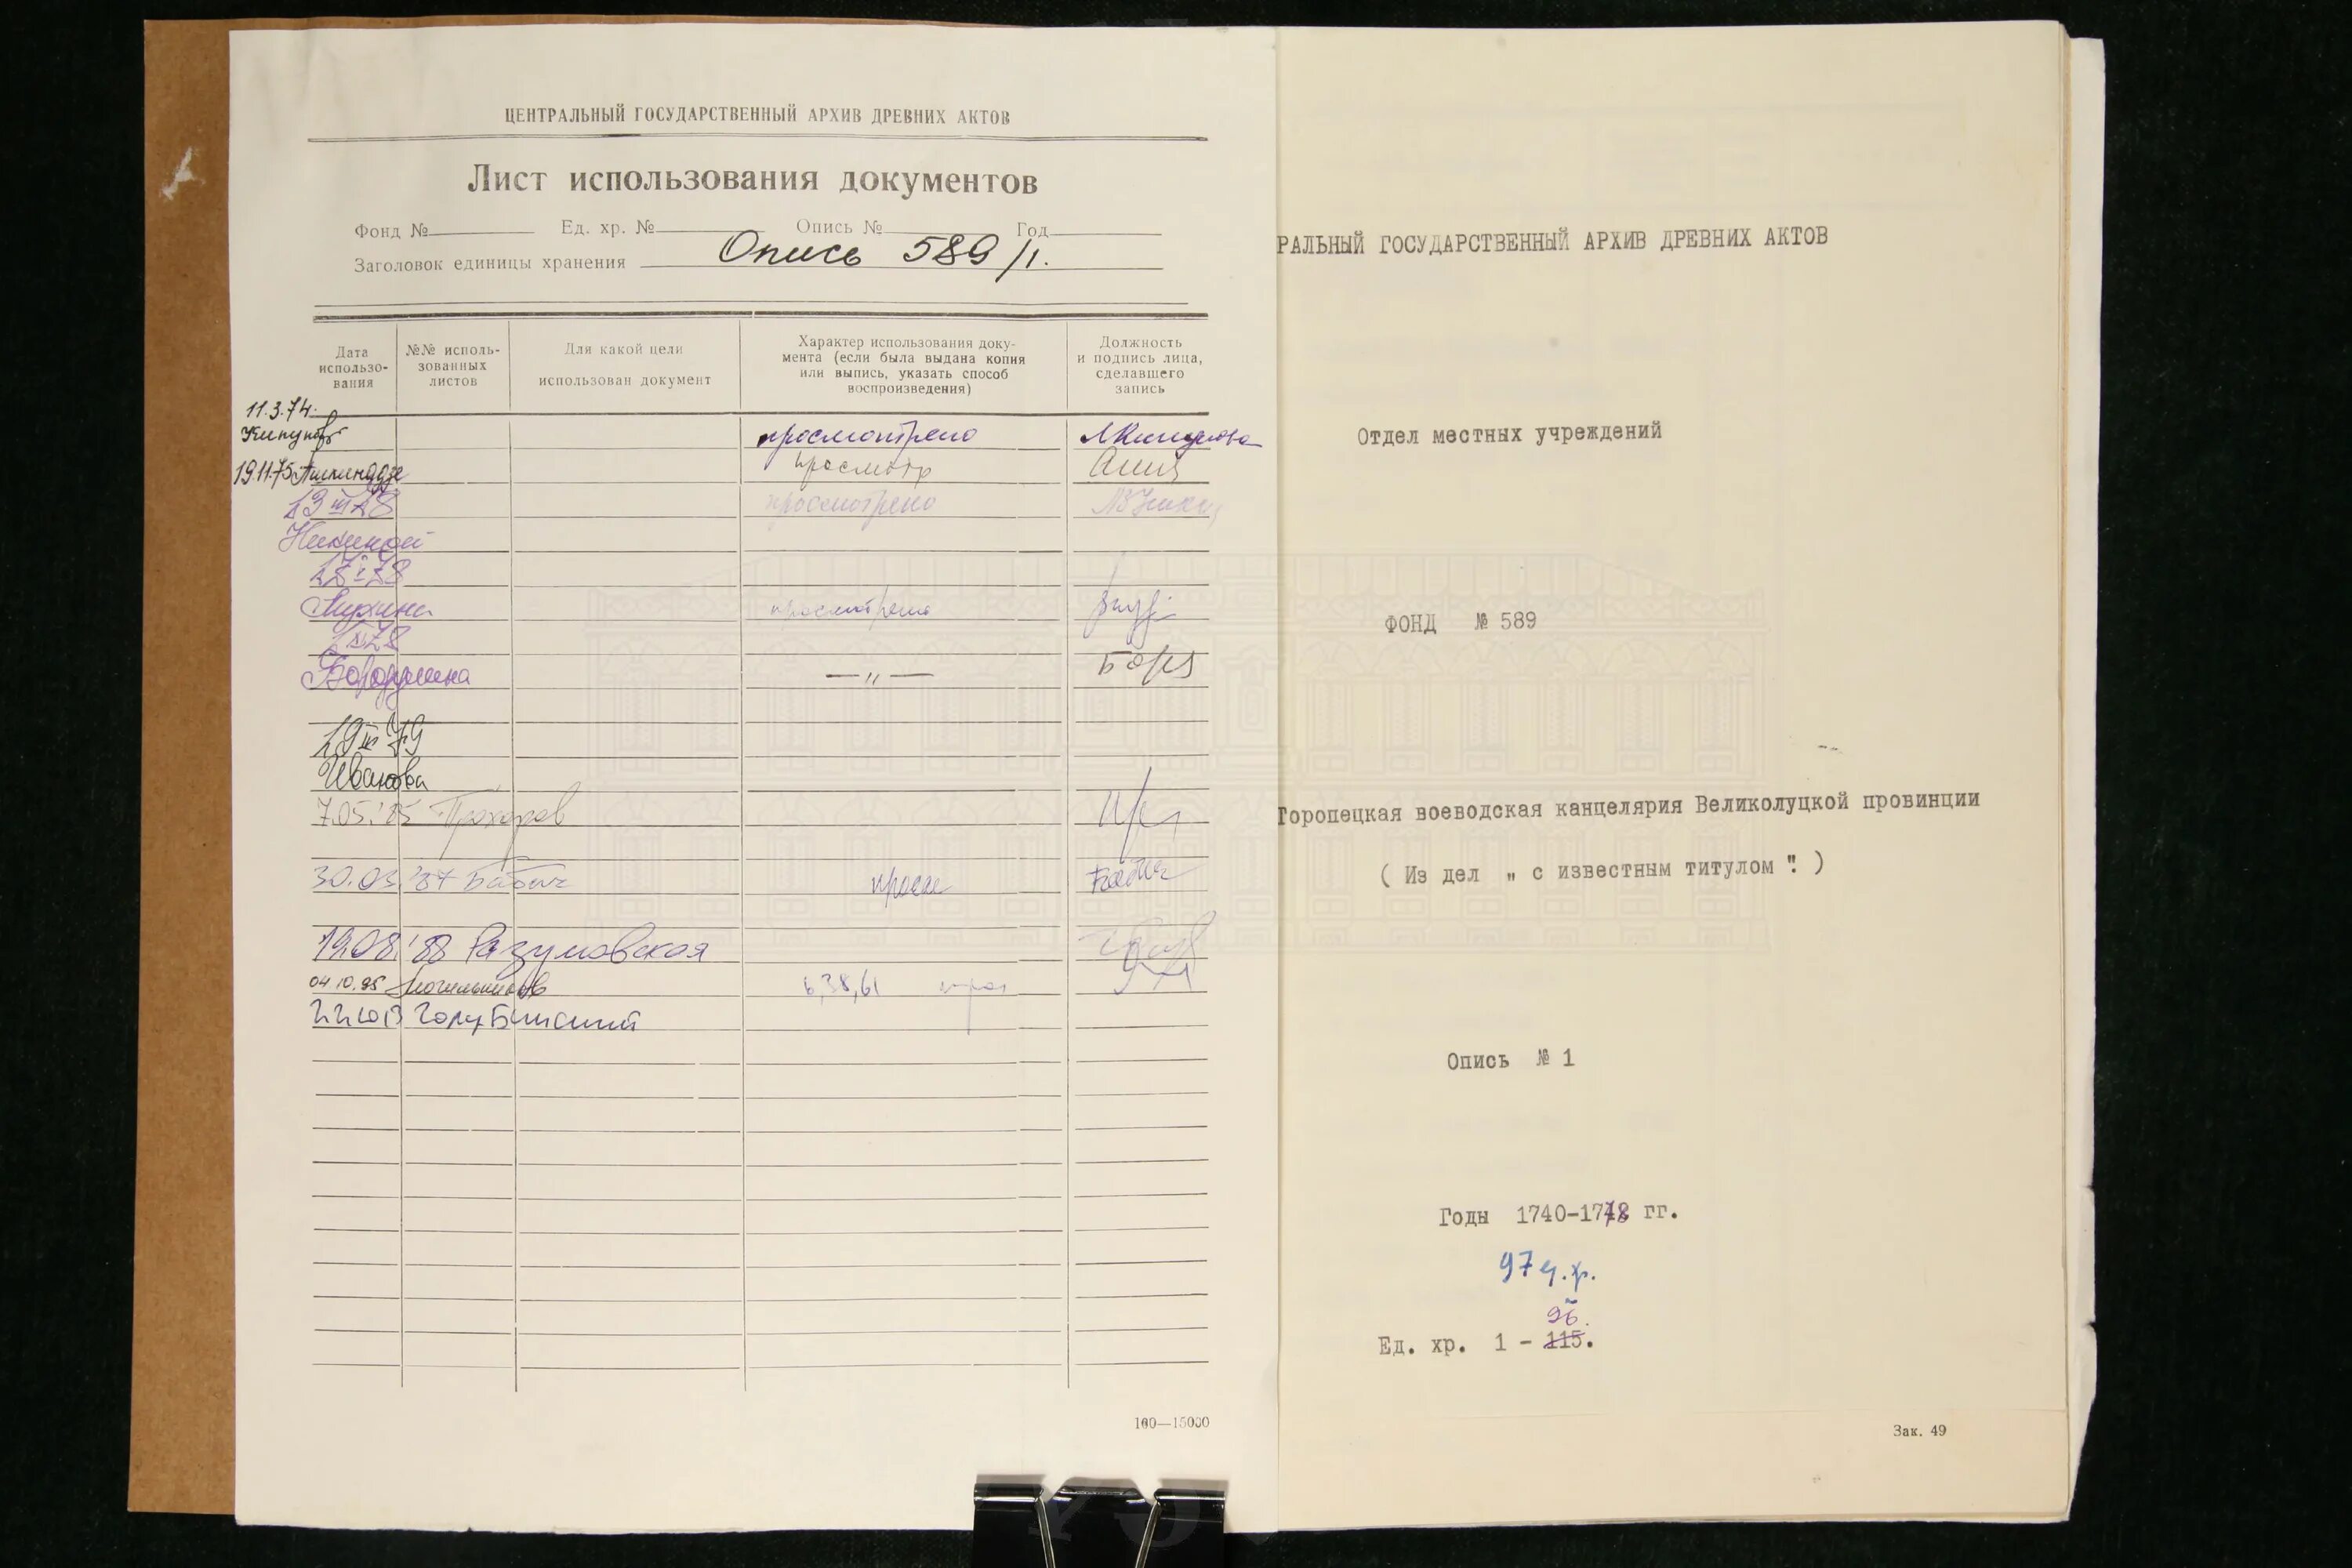 ЦЕНТРАЛЬНЫЙ ГОСУДАРСТВЕННЫЙ АРХИВ ДРЕВНИХ АКТОВ
Лист использования документов
Фонд № Ед. хр. № Опись № Год
Заголовок единицы хранения Опись 589/1.
Дата использо-вания
№№ исполь-зованных листов
Для какой цели использован документ
Характер использования доку-мента (если была выдана копия или выпись, указать способ воспроизведения)
Должность и подпись лица, сделавшего запись
11.3.74.
просмотрено
19.11.75 просмотр
просмотрено
просмотрено
Бородкина — " —
19 III 79
Иванова
7.05.'85 Прохоров
30.03.'87 Бабич Бабич
19.08.'88 Разумовская
04 10.95 6,38,61
Голубинский
100—15000
РАЛЬНЫЙ ГОСУДАРСТВЕННЫЙ АРХИВ ДРЕВНИХ АКТОВ
Отдел местных учреждений
ФОНД № 589
Торопецкая воеводская канцелярия Великолуцкой провинции
( Из дел „ с известным титулом ". )
Опись № 1
Годы 1740-1778 гг.
97 ед.хр.
96.
Ед. хр. 1 - 115.
Зак. 49